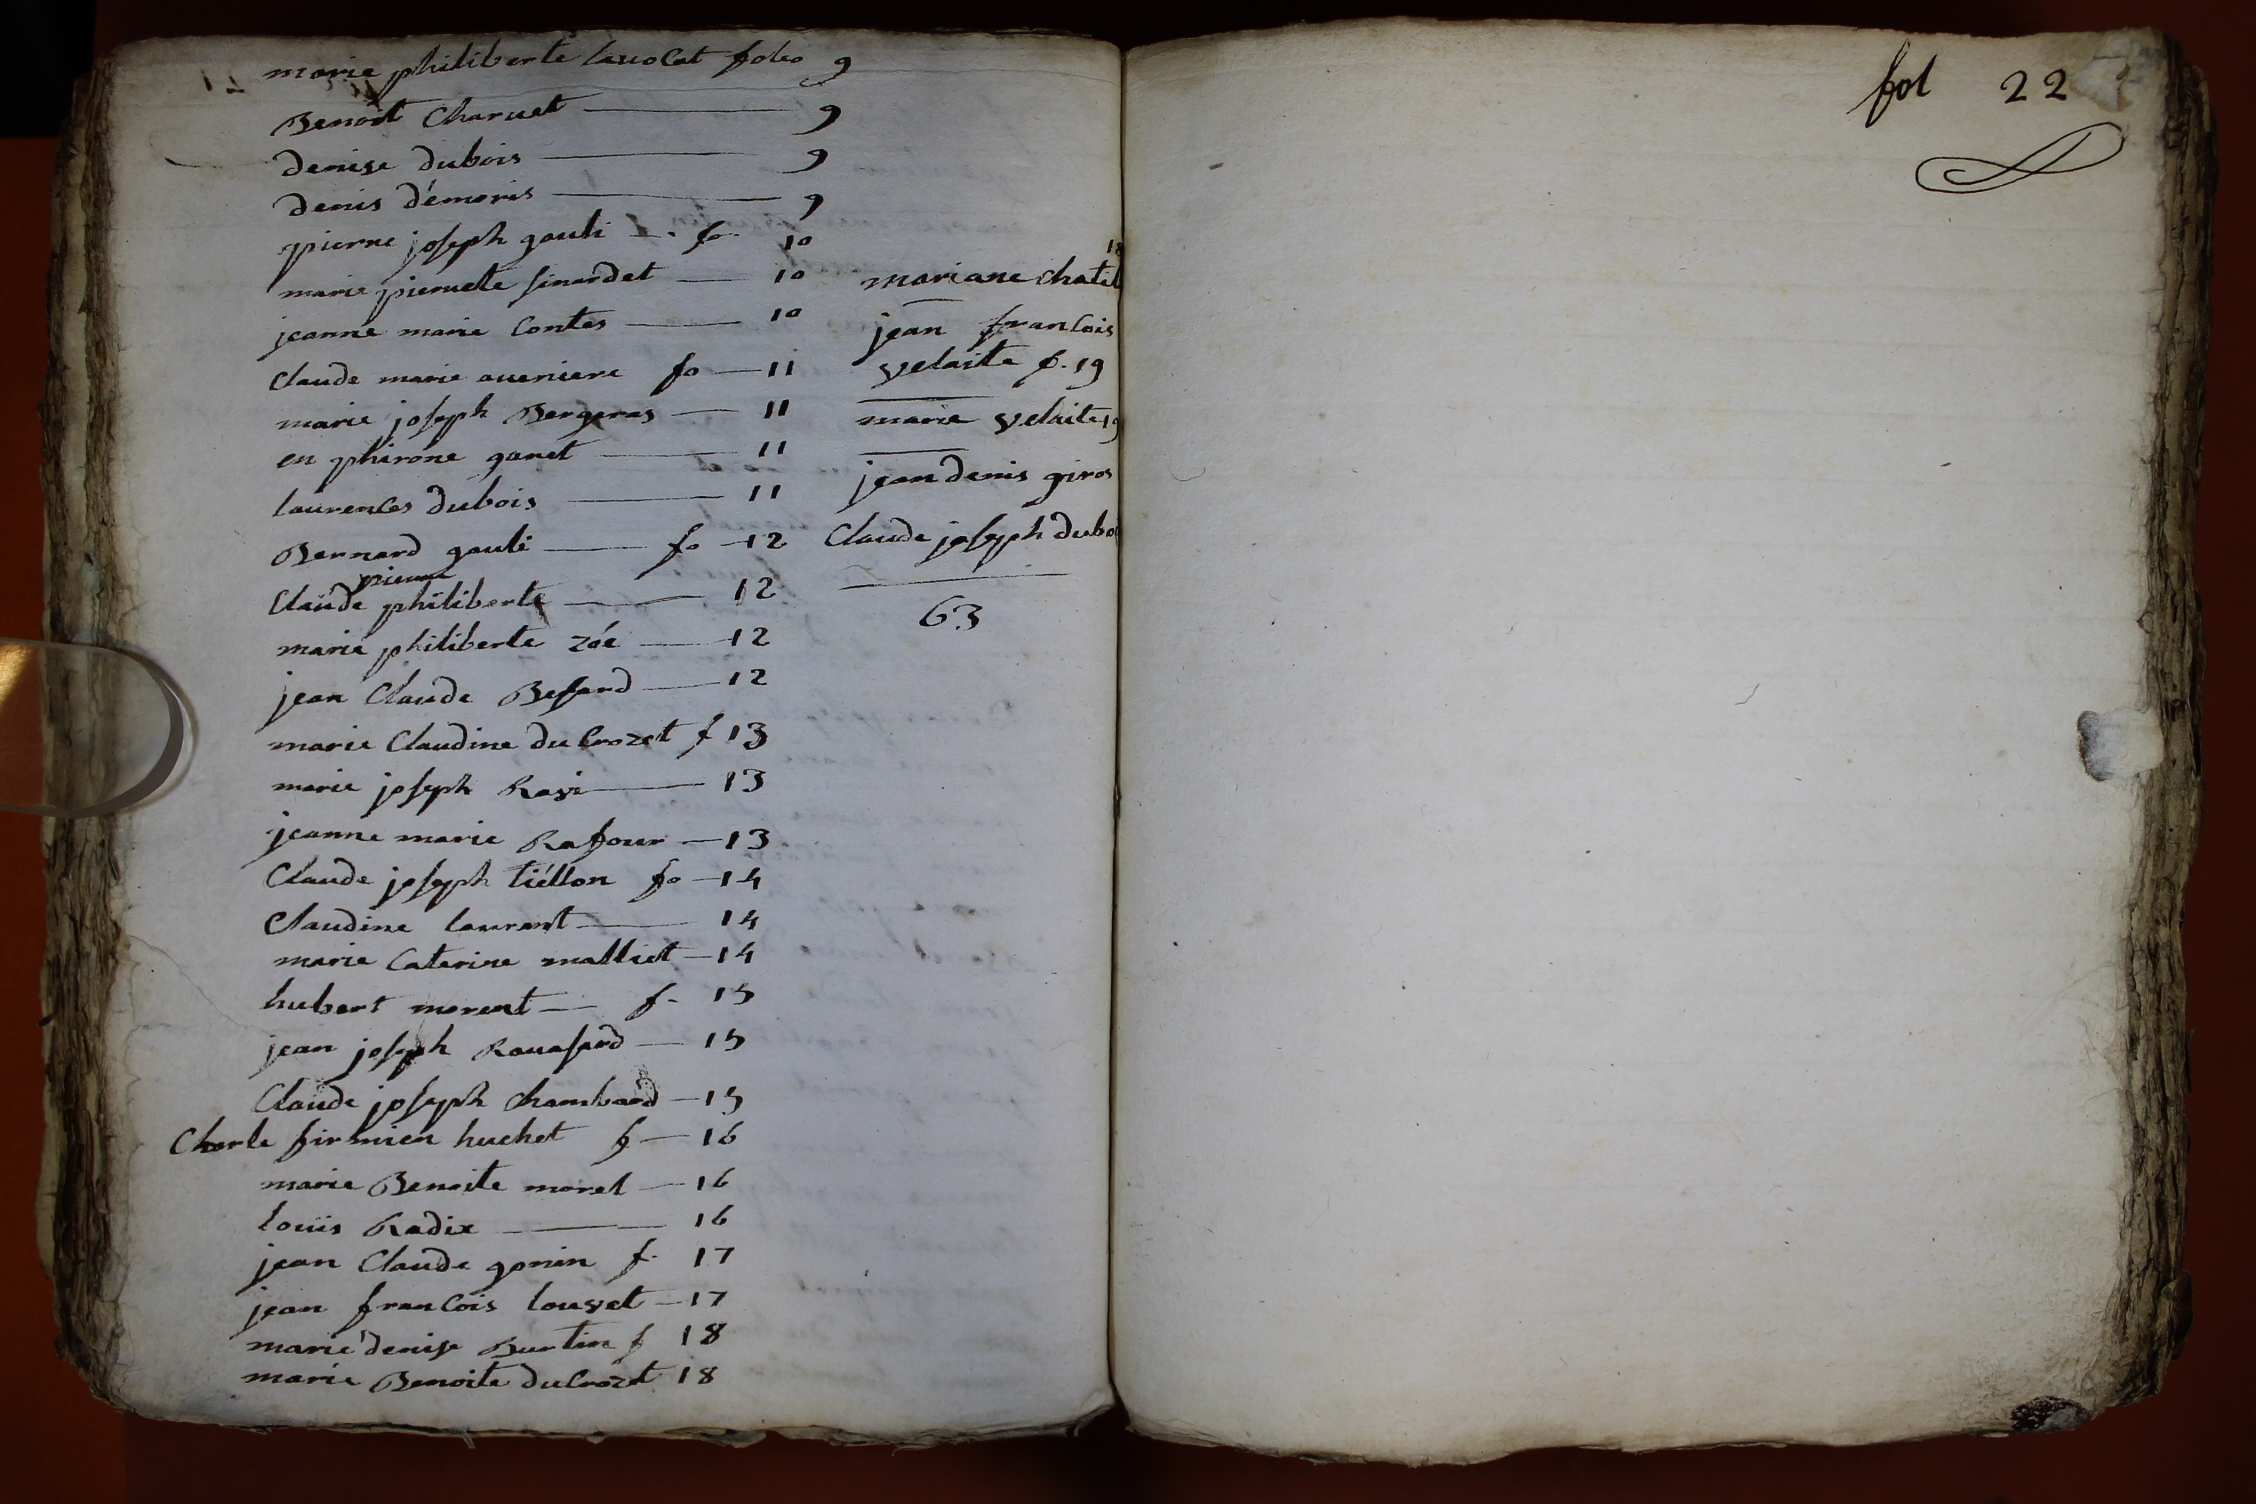 marie philiberte lauocat folio 9
Benoit Charuet 9
denise dubois 9
denis démoris 9
pierre joseph gauli fo 10
marie pierrette sinardet 10
jeanne marie Contes 10
Claude marie aueniere fo 11
marie joseph Bergeras 11
en phirone ganet 11
laurences dubois 11
Bernard gauli fo 12
pierre
Claude philiberte 12
marie philiberte zóe 12
jean Claude Besard 12
marie Claudine du Crozet f 13
marie joseph Ravi 13
jeanne marie Rafour 13
Claude joseph tiéllon fo 14
Claudine laurant 14
marie Caterine malliet 14
hubert morent f. 15
jean joseph Rouasard 15
Claude joseph Chambard 15
Charle firmien huchet f 16
marie Benoite morel 16
louis Radix 16
jean Claude gonin f. 17
jean francois louvet 17
marie denise Burtin f 18
marie Benoite du Crozet 18
18
mariane Chatel
jean francois
velaite f. 19
marie velaite 19
jean denis giros
Claude joseph duboi
63
fol 22